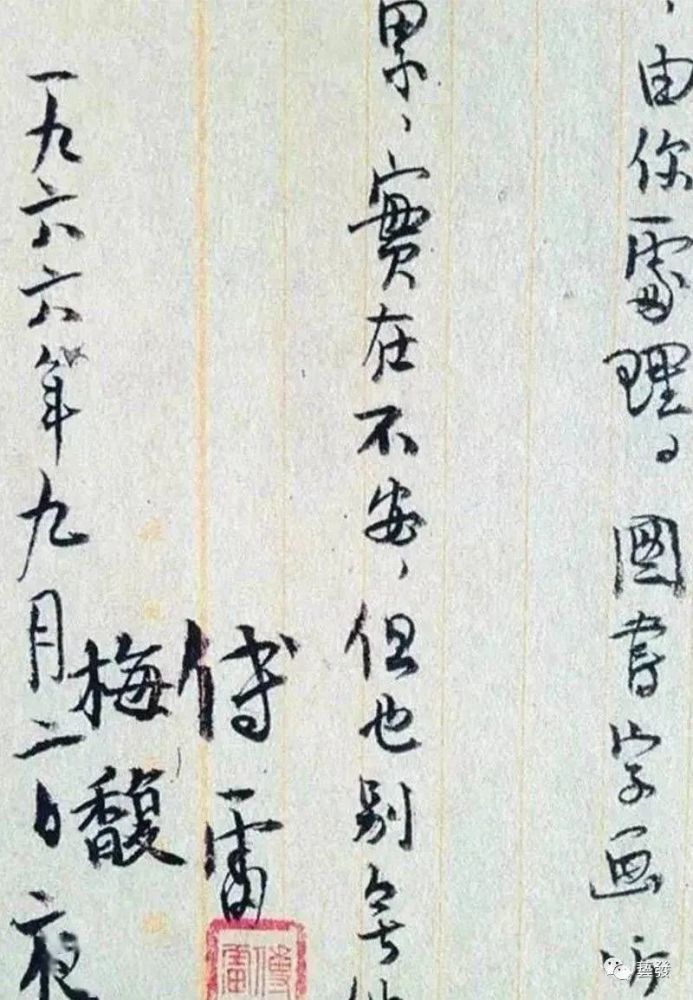 ，由你處理。圖書字画听
累，實在不安，但也别無
傅雷
梅馥
一九六六年九月二日夜
傅雷
藝發